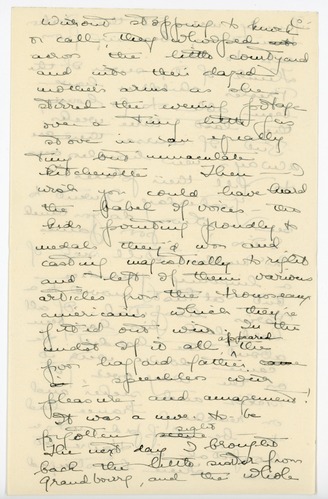 10-
without stopping to knock
or call, they whoofed
across the little courtyard
and into their dazed
mother's arms as she
stirred the evening potage
over a tiny little gas
stove in an equally
tiny but immaculate
kitchenette. Then - I
wish you could have heard
the babel of voices - the
kids pointing proudly to
medals they'd won and
casting majestically to right
and left of them various
articles from the trousseaux
americains which they're
fitted out with. In the
midst of it all appeared the
poor haggard father
speechless with
pleasure and amazement!
It was a never to be
forgotten sight
The next day I brought
back the little sister from
Grandbourg, and the whole